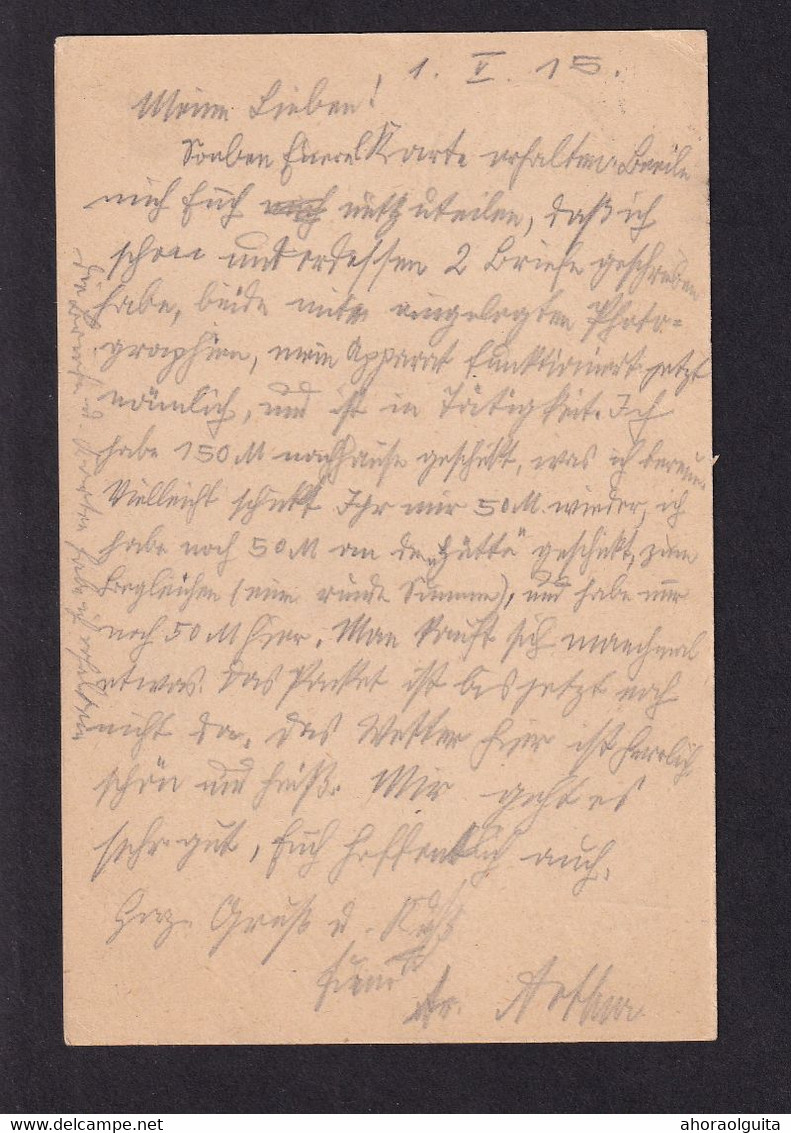 1. V. 15.
Meine Lieben!
Soeben Euere Karte erhalten. Beeile
mich Euch mitzuteilen, daß ich
schon unterdessen 2 Briefe geschrieben
habe, beide mit eingelegten Photo=
graphien, mein Apparat funktioniert jetzt
nämlich, und ist in Tätigkeit. Ich
habe 150 M nachhause geschikt, was ich bereue.
Vielleicht schikt Ihr mir 50 M. wieder, ich
habe noch 50 M an die geschikt, zum
Begleichen (eine runde Summe), und habe nur
noch 50 M hier. Man kauft sich manchmal
etwas. Das Packet ist bis jetzt noch
nicht da. Das Wetter hier ist herrlich
schön und heiß. Mir geht es
sehr gut, Euch hoffentlich auch.
Herz. Gruß u. Kuß
Euer
Arthur.
habe ich erhalten
ahoraolguita
HTTP://COM.DELCAMPE.NET